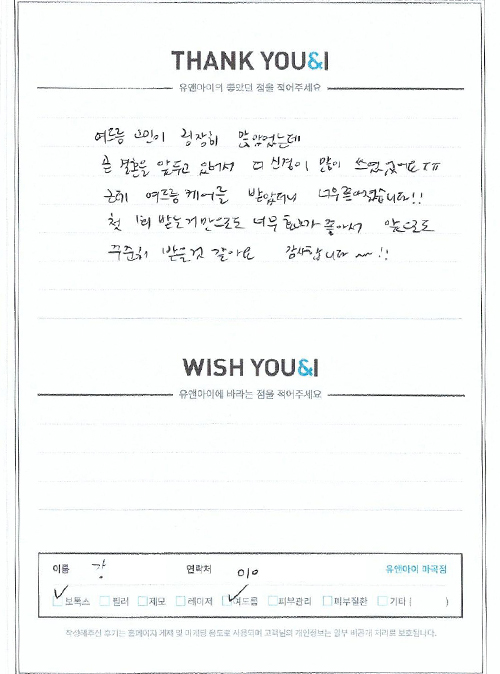 THANK YOU&I
유앤아이의 좋았던 점을 적어주세요
여드름 고민이 굉장히 많았었는데
곧 결혼을 앞두고 있어서 더 신경이 많이 쓰였었어요ㅠㅠ
근데 여드름케어를 받았더니 너무 좋아졌습니다!!
첫 1회 받는거만으로도 너무 효과가 좋아서 앞으로도
꾸준히 받을것 같아요 감사합니다~!!
WISH YOU&I
유앤아이에 바라는 점을 적어주세요
이름 강 연락처 010 유앤아이 마곡점
보톡스 필러 제모 레이저 여드름 피부관리 피부질환 기타 ( )
작성해주신 후기는 홈페이지 게재 및 마케팅 용도로 사용되며 고객님의 개인정보는 일부 비공개 처리로 보호됩니다.